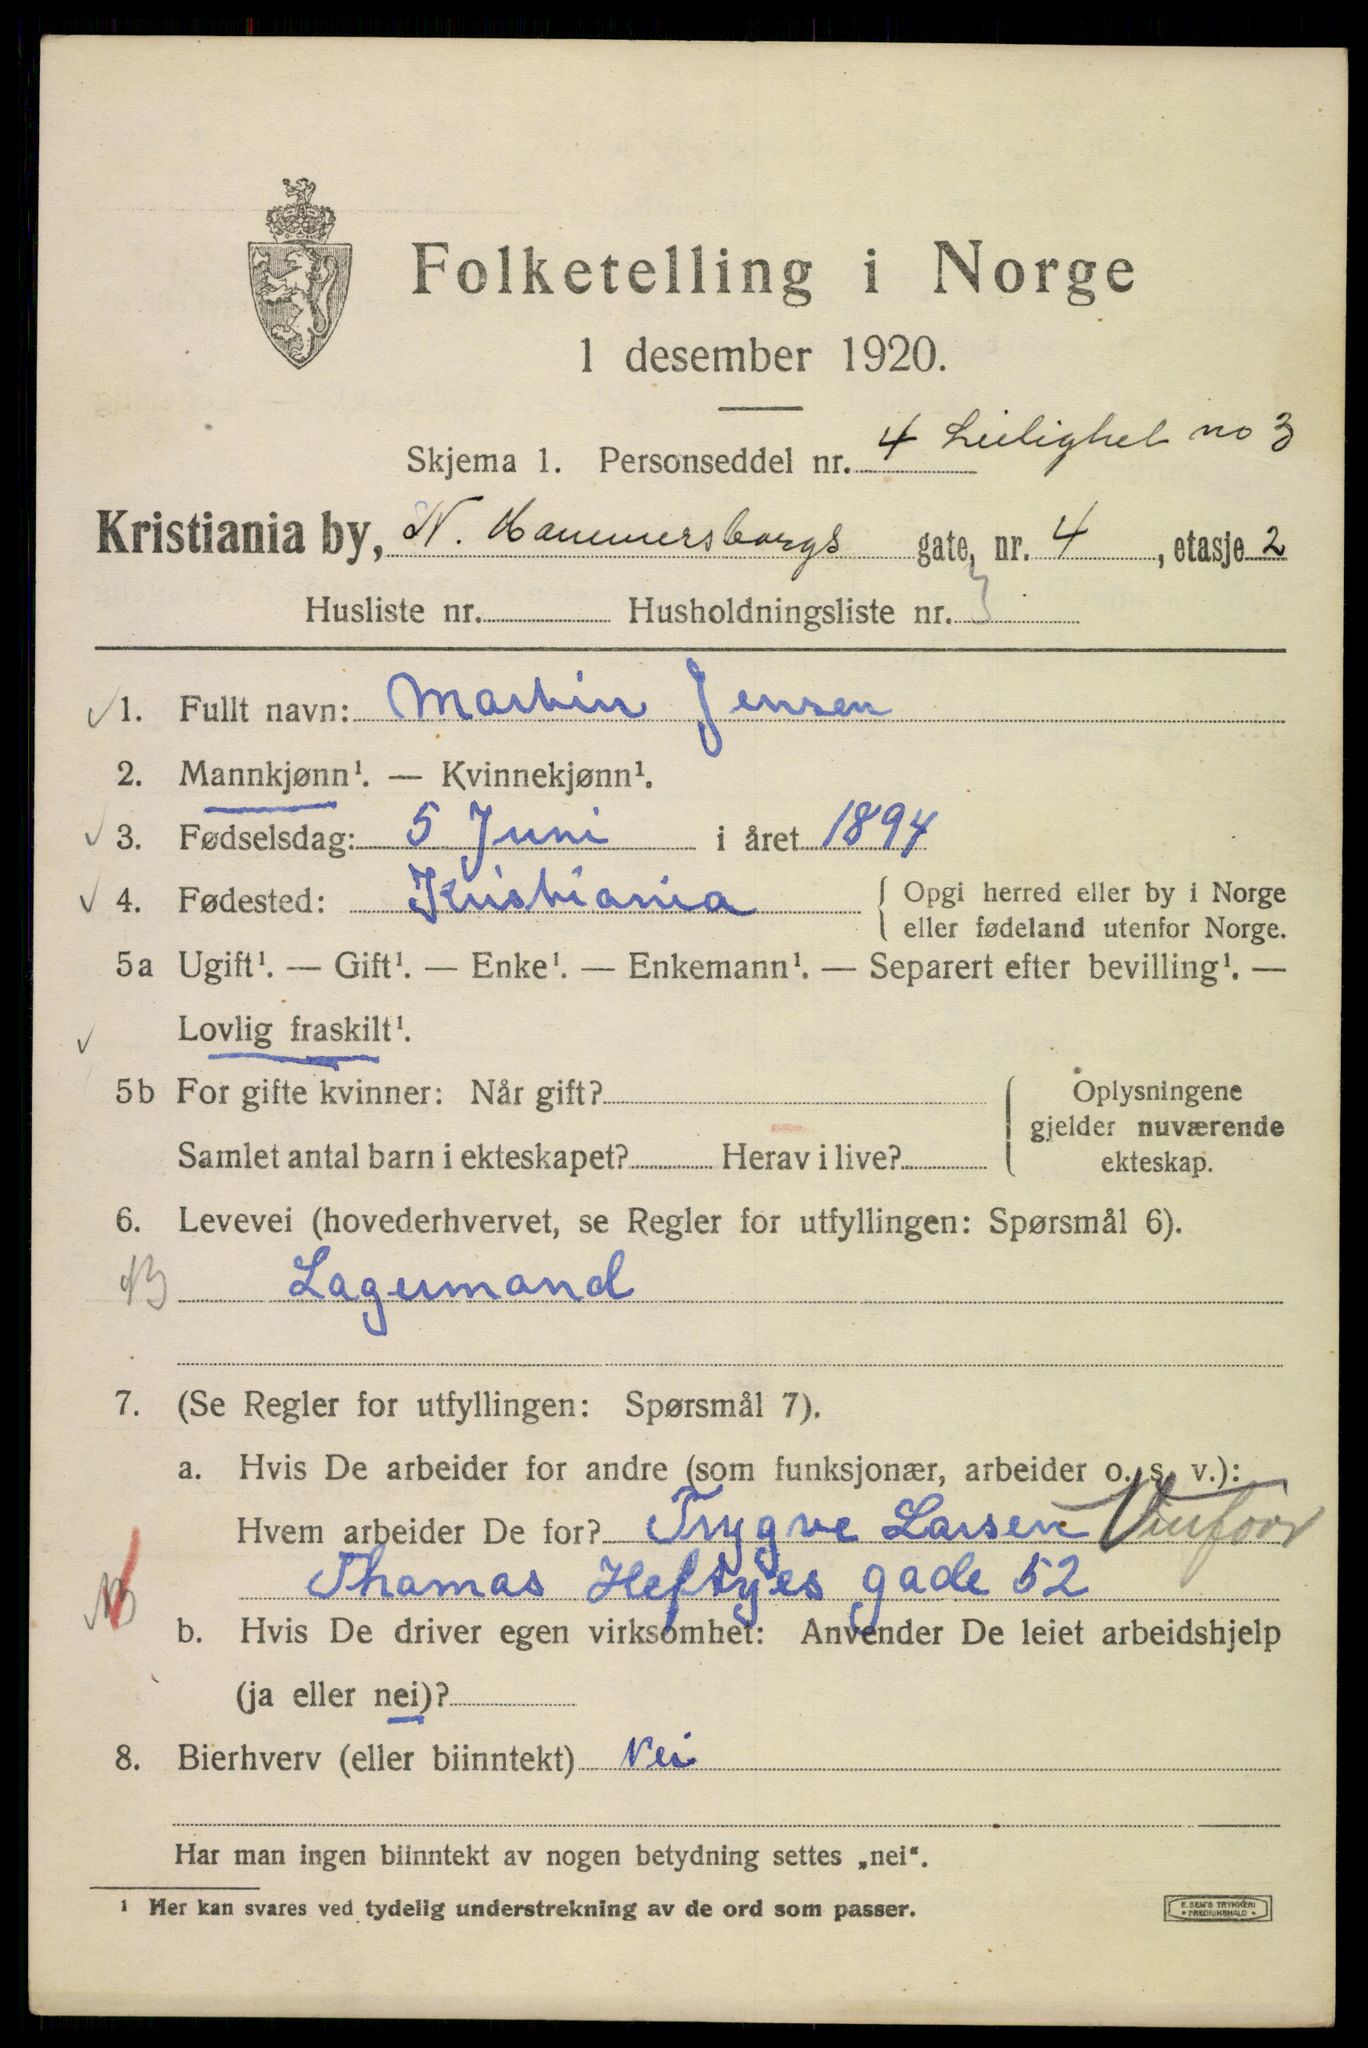 Folketelling i Norge
1 desember 1920.
Skjema 1. Personseddel nr. 4 Leilighet no 3
Kristiania by, N. Hammersborgs gate, nr. 4, etasje 2
Husliste nr. Husholdningsliste nr. 3
1. Fullt navn: Martin Jensen
2. Mannkjønn¹. — Kvinnekjønn¹.
3. Fødselsdag: 5 Juni i året 1894
4. Fødested: Kristiania { Opgi herred eller by i Norge
eller fødeland utenfor Norge.
5a Ugift¹. — Gift¹. — Enke¹. — Enkemann¹. — Separert efter bevilling¹. —
Lovlig fraskilt¹.
5b For gifte kvinner: Når gift? Oplysningene
gjelder nuværende
Samlet antal barn i ekteskapet? Herav i live? ekteskap.
6. Levevei (hovederhvervet, se Regler for utfyllingen: Spørsmål 6).
Lagermand
7. (Se Regler for utfyllingen: Spørsmål 7).
a. Hvis De arbeider for andre (som funksjonær, arbeider o. s. v.):
Hvem arbeider De for? Trygve Larsen
Thomas Heftyes gade 52
b. Hvis De driver egen virksomhet: Anvender De leiet arbeidshjelp
(ja eller nei)?
8. Bierhverv (eller biinntekt) Nei
Har man ingen biinntekt av nogen betydning settes „nei“.
¹ Her kan svares ved tydelig understrekning av de ord som passer.
E. SEM'S TRYKKERI
• FREDRIKSHALD •